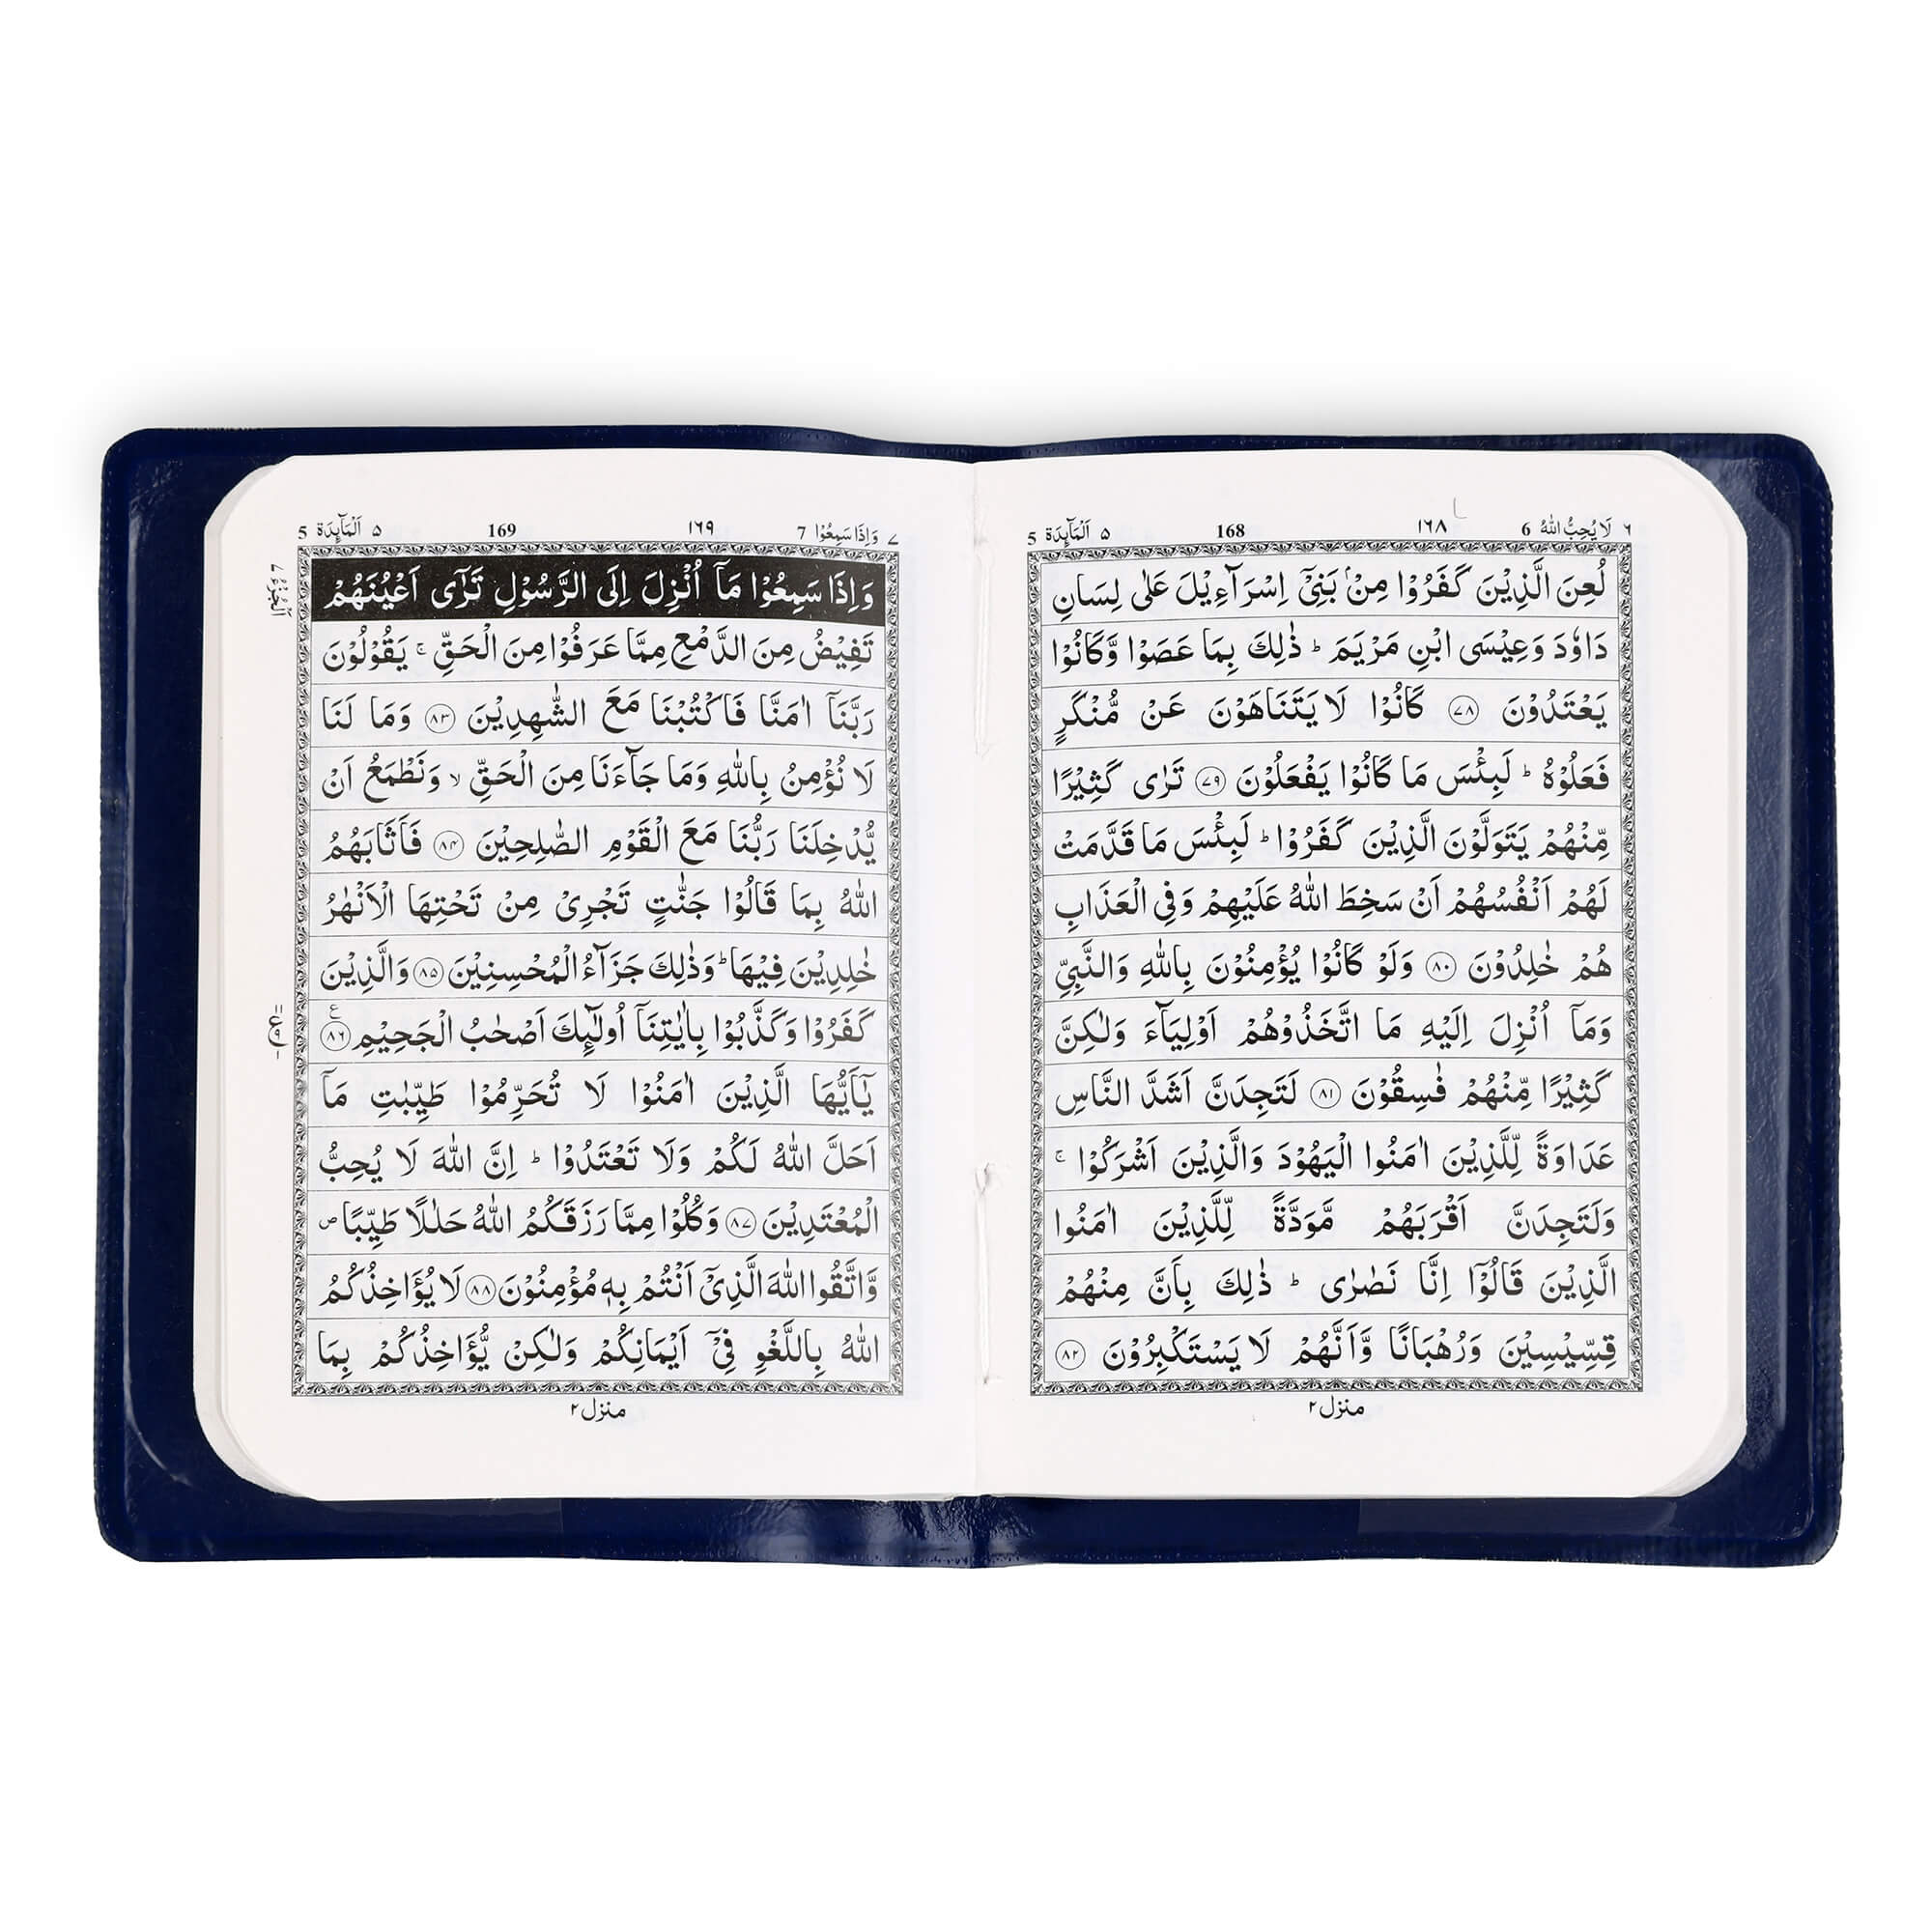 ٦ لَا يُحِبُّ اللهُ 6 ١٦٨ 168 ٥ اَلْمَآئِدَة 5
لُعِنَ الَّذِيْنَ كَفَرُوْا مِنْۢ بَنِيْٓ اِسْرَآءِيْلَ عَلٰى لِسَانِ
دَاوٗدَ وَعِيْسَى ابْنِ مَرْيَمَ ؕ ذٰلِكَ بِمَا عَصَوْا وَّكَانُوْا
يَعْتَدُوْنَ ﴿٧٨﴾ كَانُوْا لَا يَتَنَاهَوْنَ عَنْ مُّنْكَرٍ
فَعَلُوْهُ ؕ لَبِئْسَ مَا كَانُوْا يَفْعَلُوْنَ ﴿٧٩﴾ تَرٰى كَثِيْرًا
مِّنْهُمْ يَتَوَلَّوْنَ الَّذِيْنَ كَفَرُوْا ؕ لَبِئْسَ مَا قَدَّمَتْ
لَهُمْ اَنْفُسُهُمْ اَنْ سَخِطَ اللهُ عَلَيْهِمْ وَفِي الْعَذَابِ
هُمْ خٰلِدُوْنَ ﴿٨٠﴾ وَلَوْ كَانُوْا يُؤْمِنُوْنَ بِاللهِ وَالنَّبِيِّ
وَمَآ اُنْزِلَ اِلَيْهِ مَا اتَّخَذُوْهُمْ اَوْلِيَآءَ وَلٰكِنَّ
كَثِيْرًا مِّنْهُمْ فٰسِقُوْنَ ﴿٨١﴾ لَتَجِدَنَّ اَشَدَّ النَّاسِ
عَدَاوَةً لِّلَّذِيْنَ اٰمَنُوا الْيَهُوْدَ وَالَّذِيْنَ اَشْرَكُوْا ۚ
وَلَتَجِدَنَّ اَقْرَبَهُمْ مَّوَدَّةً لِّلَّذِيْنَ اٰمَنُوا
الَّذِيْنَ قَالُوْٓا اِنَّا نَصٰرٰى ؕ ذٰلِكَ بِاَنَّ مِنْهُمْ
قِسِّيْسِيْنَ وَرُهْبَانًا وَّاَنَّهُمْ لَا يَسْتَكْبِرُوْنَ ﴿٨٢﴾
منزل ٢
٧ وَاِذَا سَمِعُوْا 7 ١٦٩ 169 ٥ اَلْمَآئِدَة 5
اَلْجُزْءُ ٧
وَاِذَا سَمِعُوْا مَآ اُنْزِلَ اِلَى الرَّسُوْلِ تَرٰٓى اَعْيُنَهُمْ
تَفِيْضُ مِنَ الدَّمْعِ مِمَّا عَرَفُوْا مِنَ الْحَقِّ ۚ يَقُوْلُوْنَ
رَبَّنَآ اٰمَنَّا فَاكْتُبْنَا مَعَ الشّٰهِدِيْنَ ﴿٨٣﴾ وَمَا لَنَا
لَا نُؤْمِنُ بِاللهِ وَمَا جَآءَنَا مِنَ الْحَقِّ ۙ وَنَطْمَعُ اَنْ
يُّدْخِلَنَا رَبُّنَا مَعَ الْقَوْمِ الصّٰلِحِيْنَ ﴿٨٤﴾ فَاَثَابَهُمُ
اللهُ بِمَا قَالُوْا جَنّٰتٍ تَجْرِيْ مِنْ تَحْتِهَا الْاَنْهٰرُ
خٰلِدِيْنَ فِيْهَا ؕ وَذٰلِكَ جَزَآءُ الْمُحْسِنِيْنَ ﴿٨٥﴾ وَالَّذِيْنَ
كَفَرُوْا وَكَذَّبُوْا بِاٰيٰتِنَآ اُولٰٓئِكَ اَصْحٰبُ الْجَحِيْمِ ﴿٨٦﴾ ع
يٰٓاَيُّهَا الَّذِيْنَ اٰمَنُوْا لَا تُحَرِّمُوْا طَيِّبٰتِ مَآ
اَحَلَّ اللهُ لَكُمْ وَلَا تَعْتَدُوْا ؕ اِنَّ اللهَ لَا يُحِبُّ
الْمُعْتَدِيْنَ ﴿٨٧﴾ وَكُلُوْا مِمَّا رَزَقَكُمُ اللهُ حَلٰلًا طَيِّبًا ص
وَّاتَّقُوا اللهَ الَّذِيْٓ اَنْتُمْ بِهٖ مُؤْمِنُوْنَ ﴿٨٨﴾ لَا يُؤَاخِذُكُمُ
اللهُ بِاللَّغْوِ فِيْٓ اَيْمَانِكُمْ وَلٰكِنْ يُّؤَاخِذُكُمْ بِمَا
منزل ٢